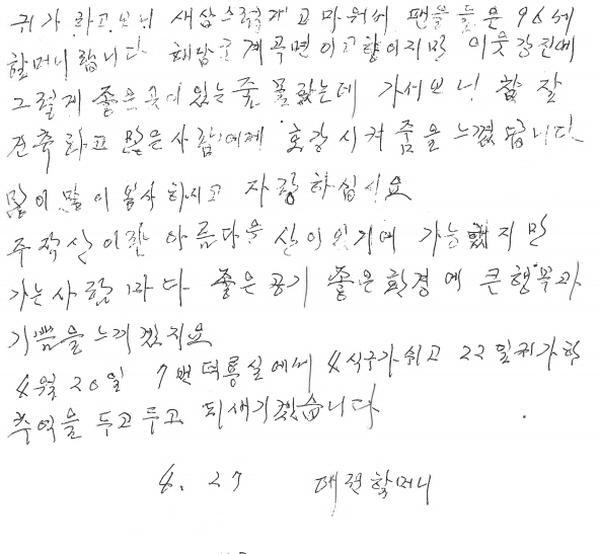 귀가 하고 보니 새삼스럽게 고마워서 팬을 들은 96세
할머니 랍니다 해남군 계곡면이 고향이지만 이웃 강진에
그렇게 좋은곳이 있는줄 몰랐는데 가서보니 참 잘
건축 하고 많은사람에게 호강 시켜 줌을 느꼈답니다
많이 많이 봉사 하시고 자랑 하십시요
주작산이란 아름다운 산이 있기에 가능했지만
가는사람마다 좋은공기 좋은환경에 큰행복과
기쁨을 느끼겠지요
4월 20일 7번 덕룡실에서 4식구가 쉬고 22일 귀가한
추억을 두고두고 되새기겠습니다
4. 27 대전할머니